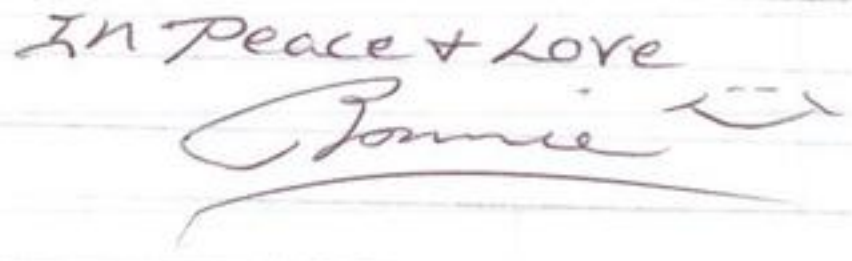 In Peace + Love
Bonnie